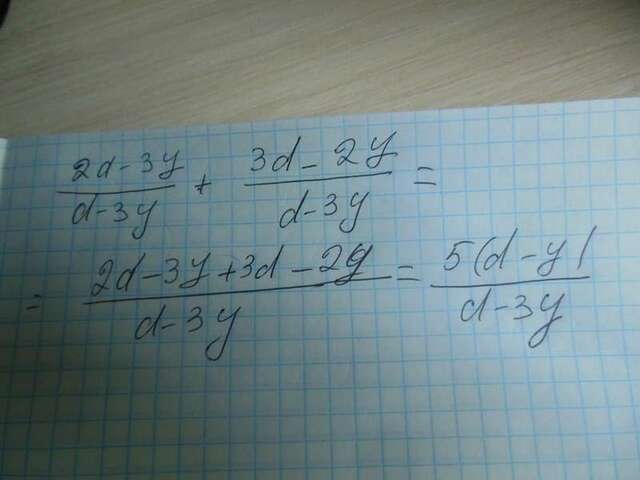 \frac{2d-3y}{d-3y} + \frac{3d-2y}{d-3y} =
= \frac{2d-3y+3d-2y}{d-3y} = \frac{5(d-y)}{d-3y}